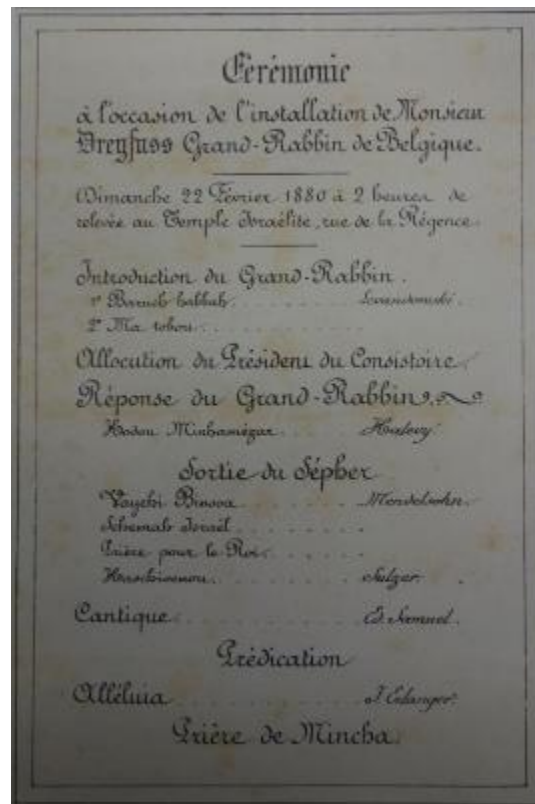 Cérémonie
à l'occasion de l'installation de Monsieur
Dreyfuss Grand-Rabbin de Belgique.
Dimanche 22 Février 1880 à 2 heures de
relevée au Temple Israélite, rue de la Régence.
Introduction du Grand-Rabbin.
1º Baruch habbah. Lewandowski.
2º Ma tobou.
Allocution du Président du Consistoire.
Réponse du Grand-Rabbin.
Hodou Halevy.
Sortie du Sépher
Vayehi Binsoa Mendelsohn.
Schemah Israël
Prière pour le Roi.
Sulzer.
Cantique Ed. Samuel.
Prédication
Alléluia J. Erlanger.
Prière de Mincha.